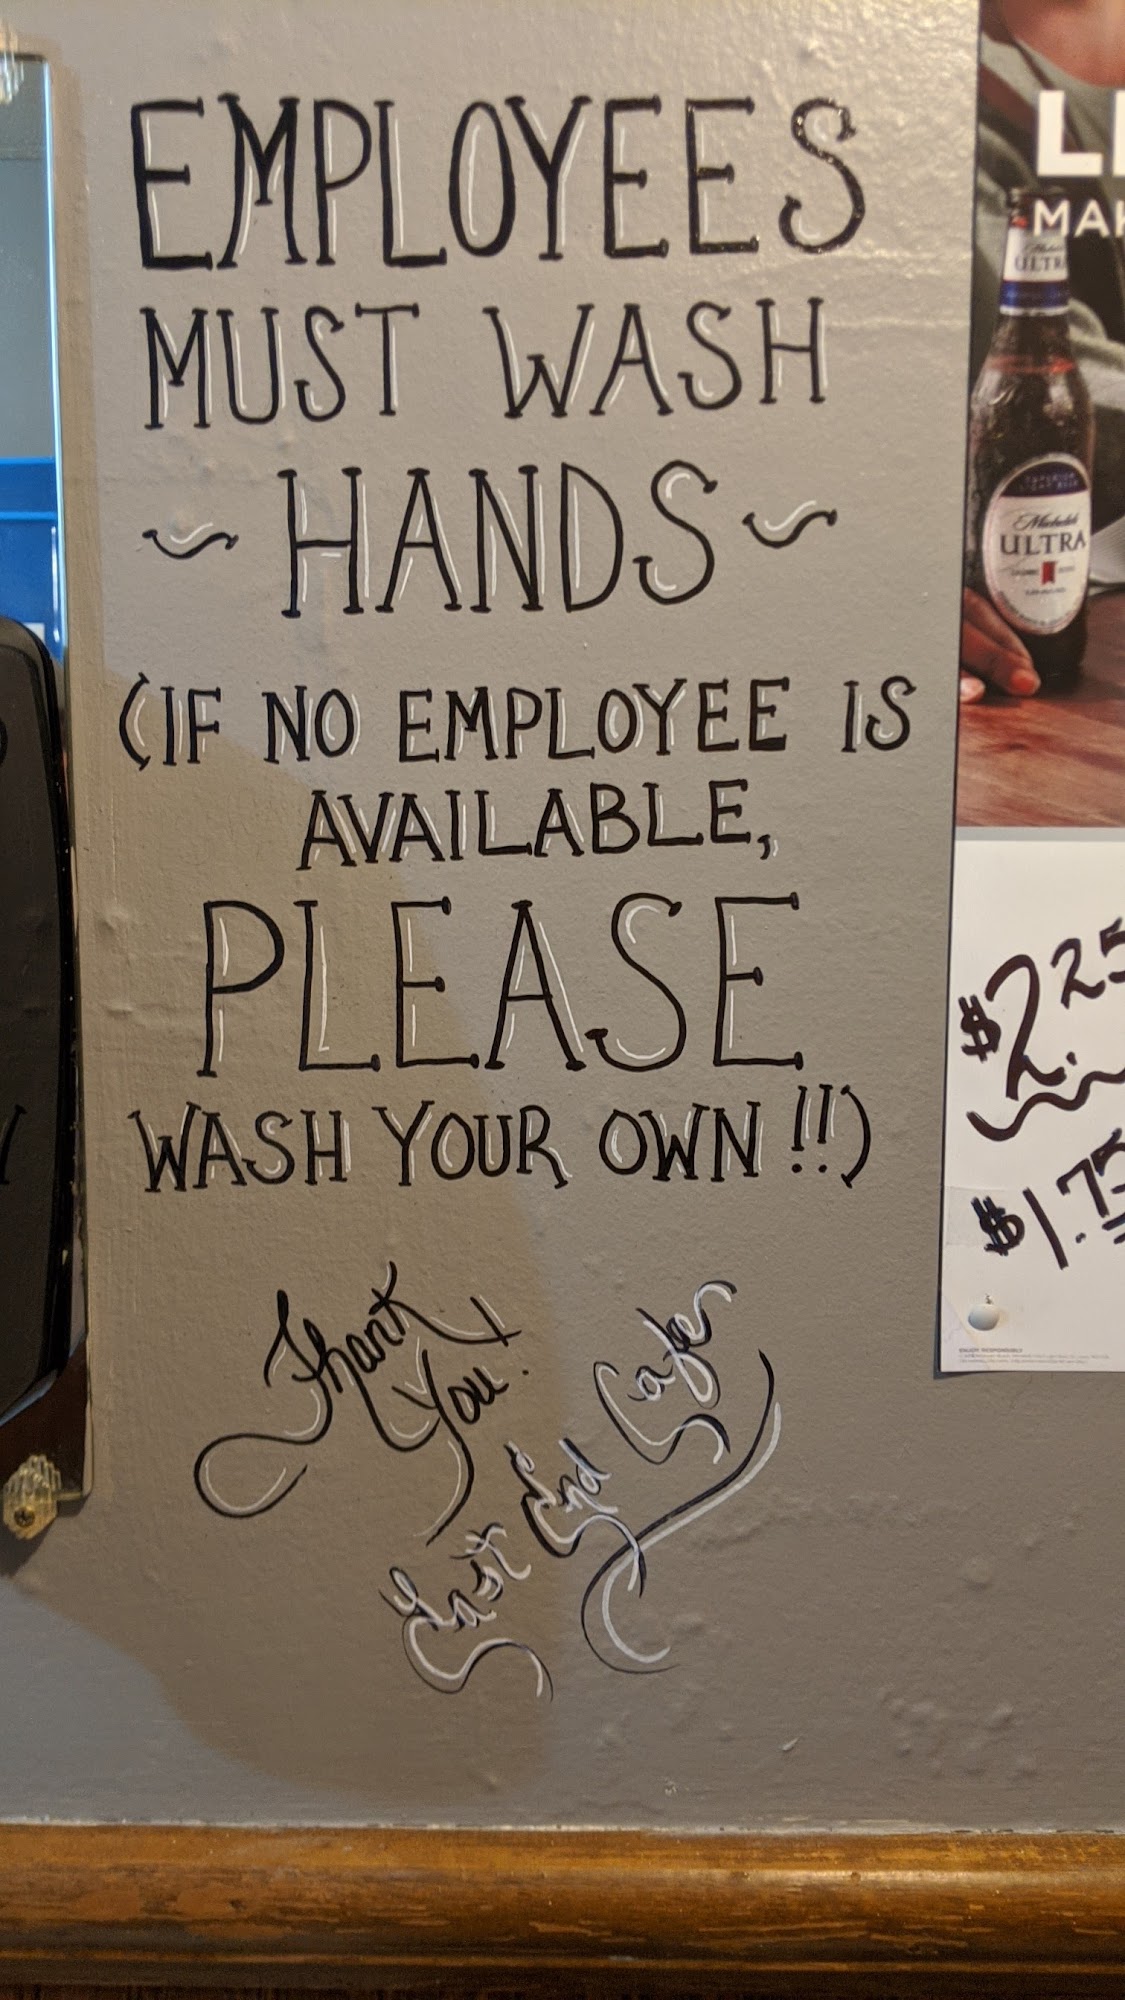 EMPLOYEES
MUST WASH
~ HANDS ~
(IF NO EMPLOYEE IS
AVAILABLE,
PLEASE
WASH YOUR OWN!!)
Thank
You!
East End Cafe
LI
MAK
ULTRA
Michelob
ULTRA
$2.25
$1.75
ENJOY RESPONSIBLY